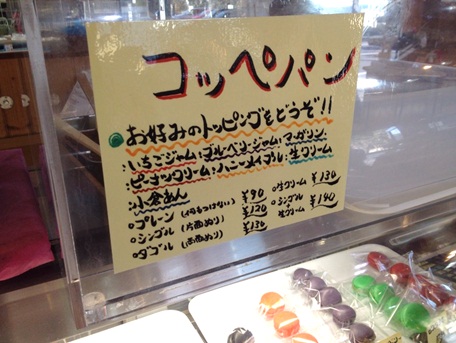 コッペパン
お好みのトッピングをどうぞ!!
いちごジャム・ブルーベリージャム・マーガリン
ピーナックリーム・ハニーメイプル・生クリーム
小倉あん
○プレーン (何もつけない) ¥90 ○生クリーム ¥130
○シングル (片面ぬり) ¥120 ○シングル+生クリーム ¥140
○ダブル (両面ぬり) ¥130